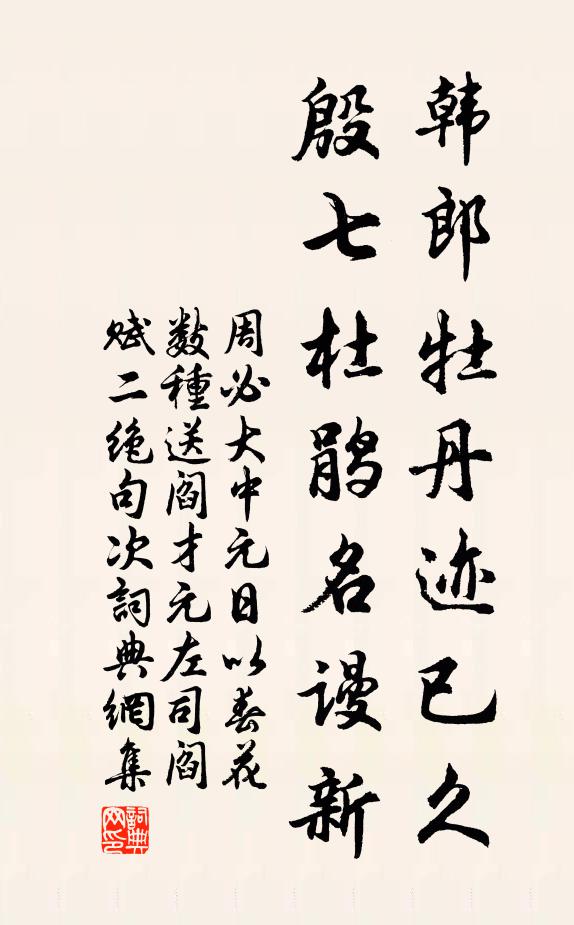 韩郎牡丹迹已久
殷七杜鹃名谩新
周必大中元日以春花
数種送阎才元左司阎
赋二绝句次詞典網集
詞典网印